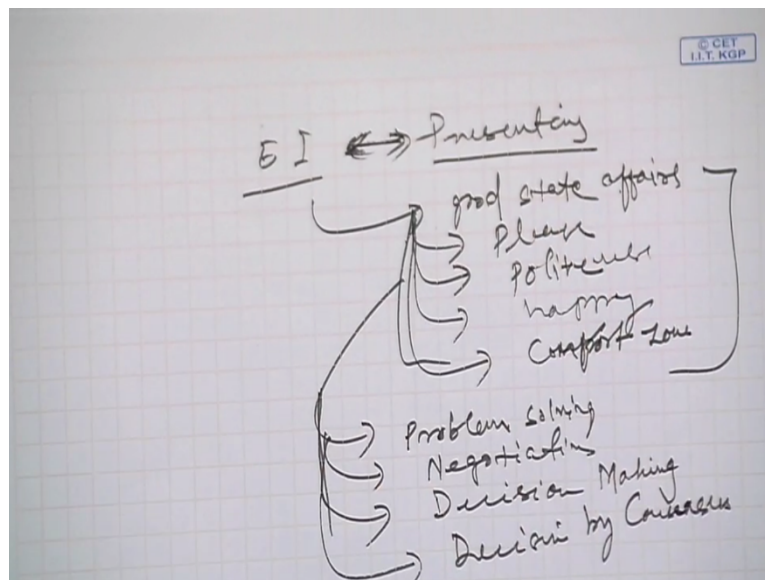 © CET
I.I.T. KGP
EI ↔ Presenting
good state affairs
Please
Politeness
happy
Comfort Zone
Problem solving
Negotiations
Decision Making
Decision by Consensus